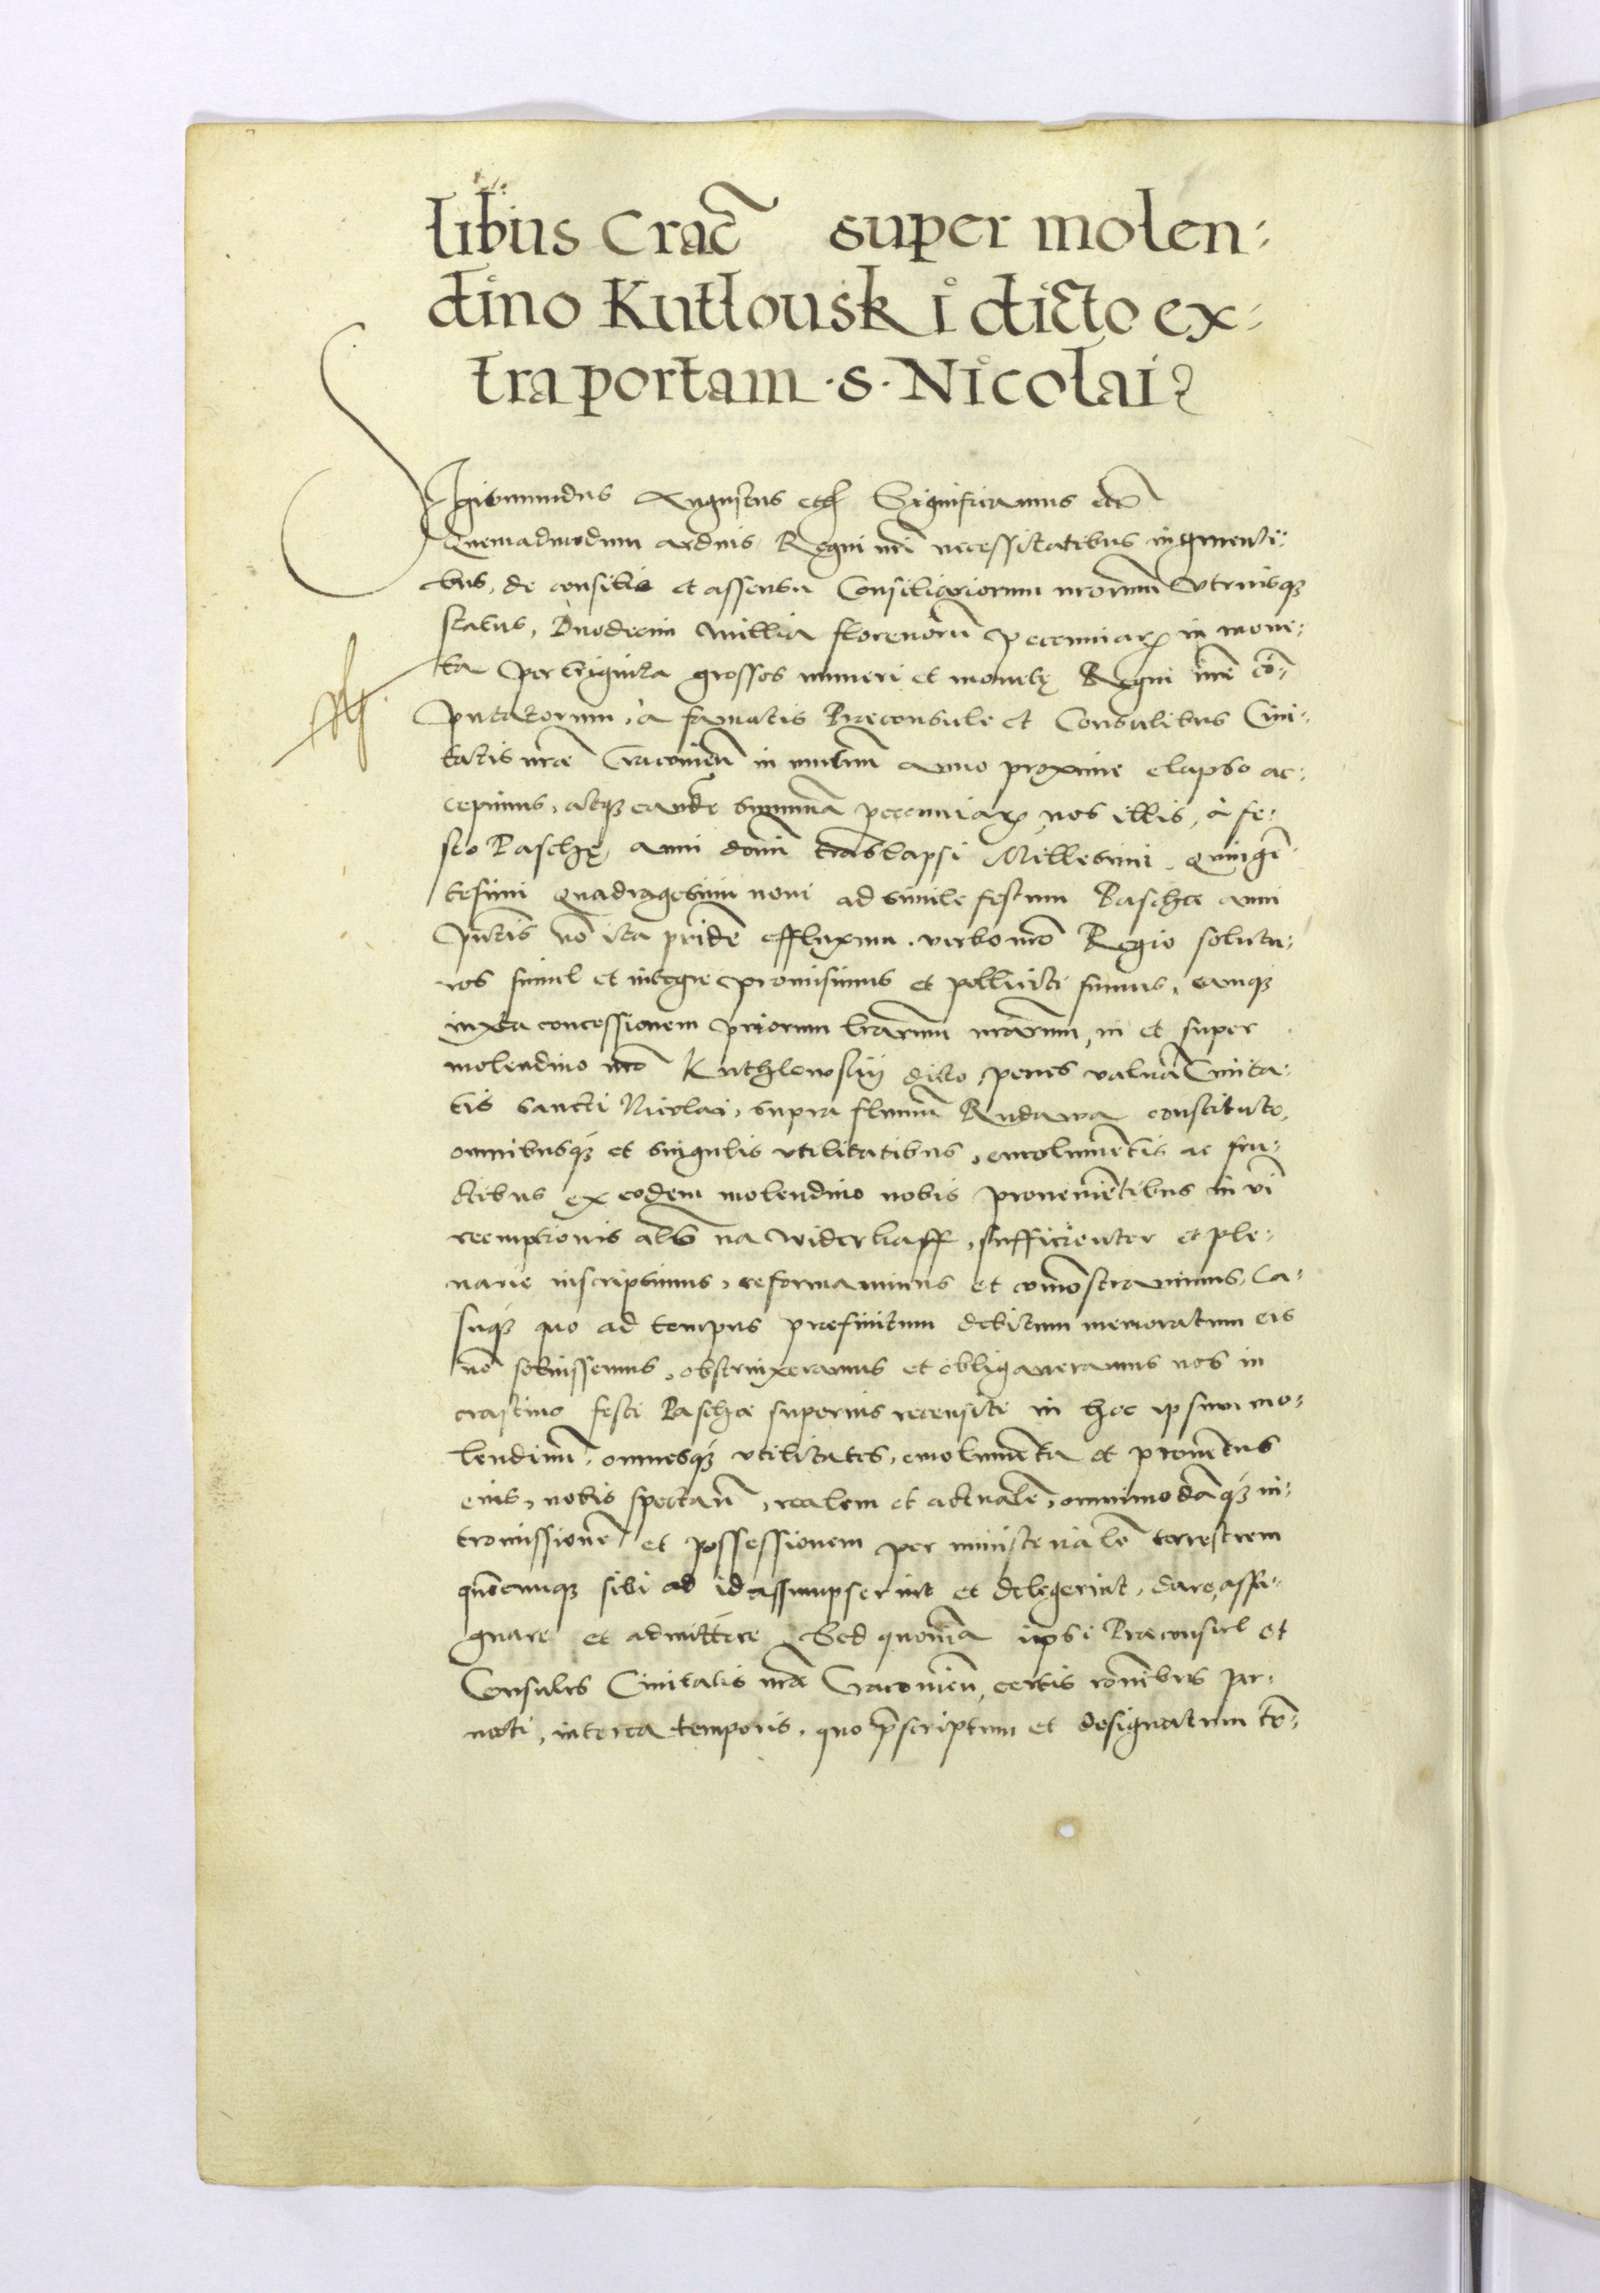 libus Crac̃ super molen-
dino Kutłouski dicto ex-
tra portam ·S· Nicolai
Sigismundus Augustus etc̃ Significamus etc̃
Quemadmodum arduis Regni nr̃i necessitatibus ingruenti-
bus, de consiliis et assensu Consiliariorum nr̃orum Utriusq;
status, Duodecim millia florenorũ pecuniarꝝ in mone-
ta per triginta grossos numeri et monetę Regni nr̃i cõ-
putatorum, à famatis Præconsule et Consulibus Civi-
tatis nr̃æ Cracovieñ in mutuũ anno proxime elapso ac-
cepimus, atq; eandẽ summã pecuniarꝝ nos illis, à fe-
sto Paschę anni domĩ translapsi Millesimi Quingẽ
tesimi Quadragesimi noni ad simile festum Paschæ anni
p̃ntis nõ ita pridẽ effluxum, verbo nr̃o Regio solutu-
ros simul et integre promisimus et polliciti sumus, eamq;
iuxta concessionem priorum lr̃arum nr̃arum, in et super
molendino nr̃o Kuthlowskij dicto, penes valuã Civita-
tis Sancti Nicolai, supra fluviũ Rudawa constituto,
omnibusq; et singulis utilitatibus, emolumẽtis ac fru-
ctibus ex eodem molendino nobis proveniẽtibus in vi
reemptionis als̃ na widerkaff, sufficienter et ple-
narie inscripsimus, reformavimus et comõstravimus, Ca-
suq; quo ad tempus præfinitum debitum memoratum eis
nõ solvissemus, obstrinxeramus et obligaveramus nos in
crastino festi Paschæ superius recensiti in hoc ipsum mo-
lendinũ, omnesq; utilitates, emolumẽta et proventus
eius, nobis spectañ, realem et actualẽ, omnimodãq; in-
tromissionẽ et possessionem per ministerialẽ terrestrem
quẽcunq; sibi ad id assumpserint et delegerint, dare, assi-
gnare et admittere Sed quoniã ipsi Præconsul et
Consules Civitatis nr̃æ Cracovieñ, certis rõnibus per-
moti, interea temporis, quo p̃scriptum et designatum tẽ-